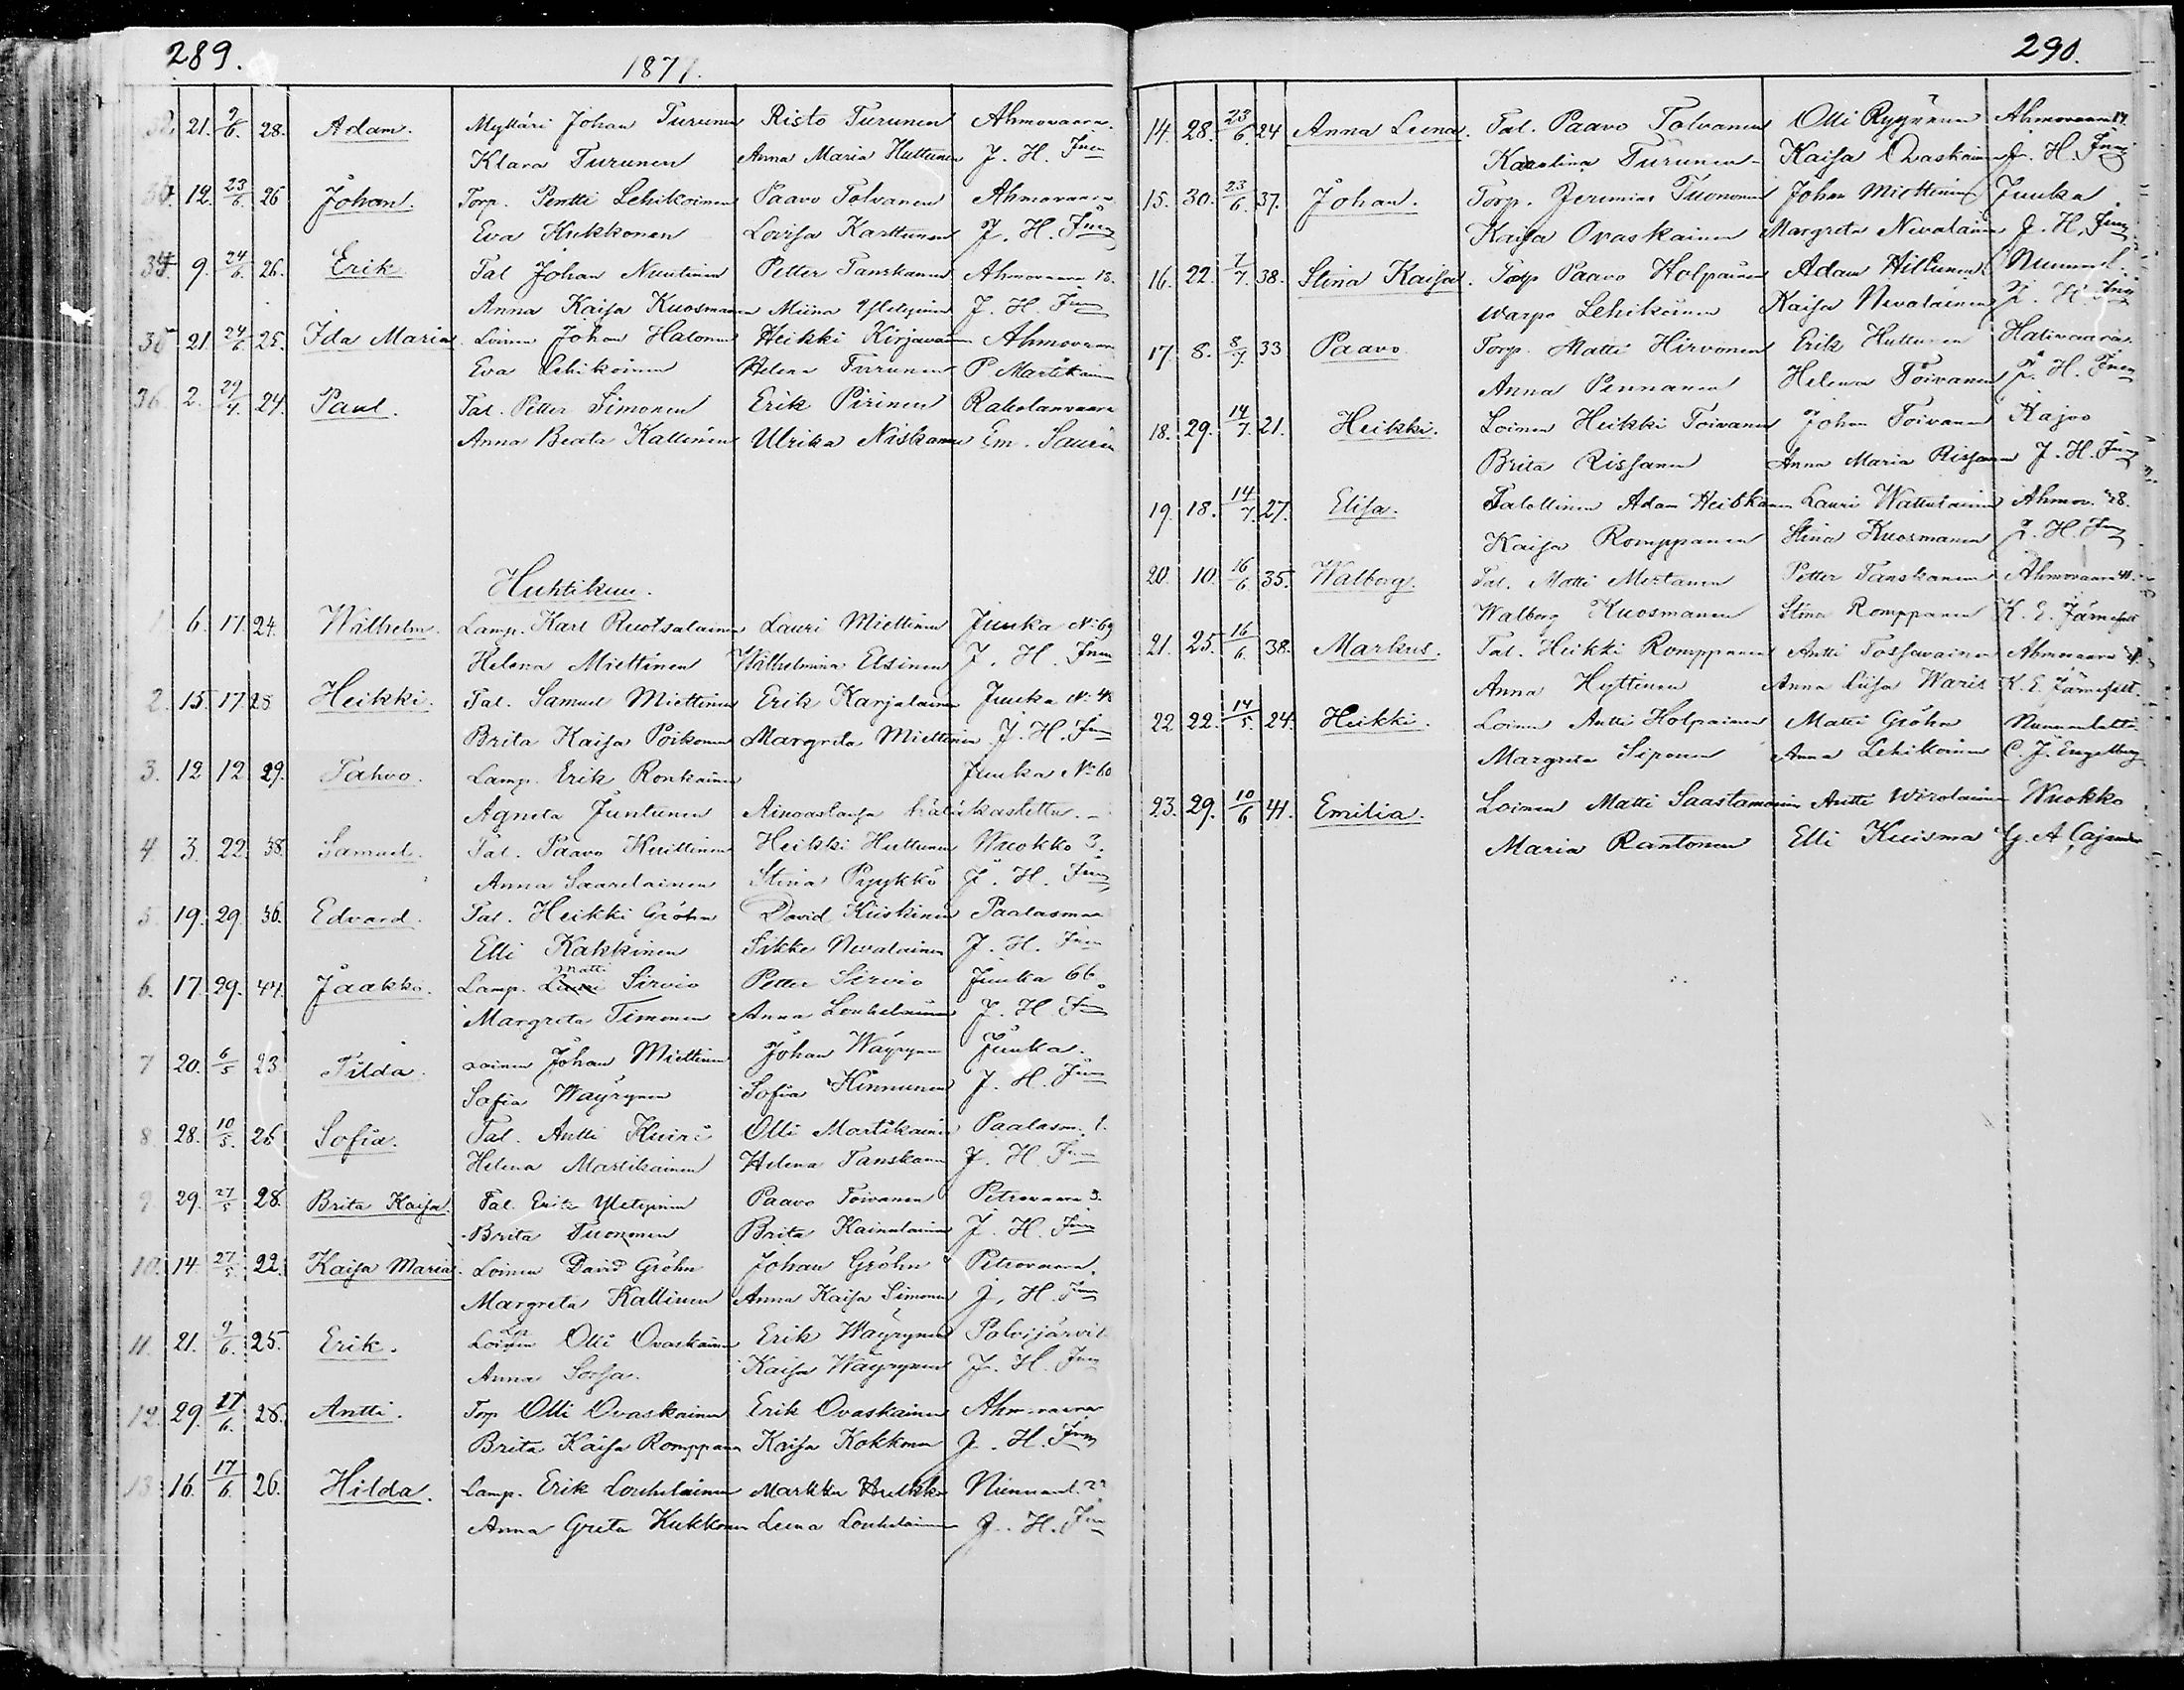 289.
1871.
21. 9/6. 28. Adam. Mylläri Johan Turunen Risto Turunen Ahmovaara.
Klara Turunen Anna Maria Huttunen J. H. Fnen
12. 23/6. 26 Johan. Torp. Pentti Lehikoinen Paavo Tolvanen Ahmovaara
Eva Kukkonen Lovisa Karttunen J. H. Fnen
34 9. 24/6. 26. Erik Tal Johan Nuutinen Petter Tanskanen Ahmovaara 18.
Anna Kaisa Kuosmanen Miina Yletyinen J. H. Fnen
35 21. 24/6. 25. Ida Maria Loinen Johan Halonen Heikki Kirjavainen Ahmovaara
Eva Lehikoinen Helena Turunen P Martikainen
36 2. 29/4. 24. Paul. Tal. Petter Simonen Erik Pirinen Raholanvaara
Anna Beata Kallinen Ulrika Niskanen Em. Saurén
Huhtikuu.
1 6. 17. 24. Wilhelm. Lamp. Karl Ruotsalainen Lauri Miettinen Juuka No 69
Helena Miettinen Wilhelmina Elsinen J. H. Fnen
2. 15. 17. 28 Heikki. Tal. Samuel Miettinen Erik Karjalainen Juuka No 4
Brita Kaisa Poikonen Margreta Miettinen J. H. Fnen
3. 12 12 29. Tahvo. Lamp. Erik Ronkainen Juuka No 60
Agneta Juntunen Ainoastansa hätäkastettu. -
4. 3. 22. 38. Samuel. Tal. Paavo Kuittinen Heikki Huttunen Nuokko 3.
Anna Saarelainen Stina Pyykkö J. H. Fnen
5. 19. 29. 36. Edvard. Tal. Heikki Gröhn David Kiiskinen Paalasmaa
Elli Kakkinen Sikke Nevalainen J. H. Fnen
Matti
6. 17. 29. 44. Jaakko. Lamp. Lauri Sirviö Petter Sirviö Juuka 66.
Margreta Timonen Anna Louhelainen J. H. Fnen
7 20. 6/5 23. Tilda. Loinen Johan Miettinen Johan Wäyrynen Juuka.
Sofia Wäyrynen Sofia Kinnunen J. H. Fnen
8 28. 10/5. 26 Sofia. Tal. Antti Kuiri Olli Martikainen Paalasm. 1.
Helena Martikainen Helena Tanskanen J. H. Fnen
9 29. 27/5 28. Brita Kaisa. Tal. Erik Yletyinen Paavo Toivanen Petrovaara 3.
Brita Tuononen Brita Kainulainen J. H. Fnen
10. 14. 27/5. 22. Kaisa Maria. Loinen David Gröhn Johan Gröhn Petrovaara.
Margreta Kallinen Anna Kaisa Simonen J. H. Fnen
11. 21. 9/6. 25. Erik. Loinen Olli Ovaskainen Erik Wäyrynen Polvijärvi
Anna Sorsa. Kaisa Wäyrynen J. H. Fnen
12. 29. 17/6. 28. Antti. Torp Olli Ovaskainen Erik Ovaskainen Ahmovaara
Brita Kaisa Romppanen Kaisa Kokkonen J. H. Fnen
13 16. 17/6. 26. Hilda. Lamp. Erik Louhelainen Markku Huikko Nunnanl. 22
Anna Greta Kukkonen Leena Louhelainen J. H. Fnen
290.
14. 28. 23/6. 24 Anna Leena. Tal. Paavo Tolvanen Olli Ryynänen Ahmovaara 17.
Karolina Turunen Kaisa Ovaskainen J. H. Fnen
15. 30. 23/6. 37. Johan. Torp. Jeremias Tuononen Johan Miettinen Juuka
Kaisa Ovaskainen Margreta Nevalainen J. H. Fnen
16. 22. 7/7. 38. Stina Kaisa. Torp Paavo Holpainen Adam Hiltunen Nunnanl.
Warpo Lehikoinen Kaisa Nevalainen J. H. Fnen
17. 8. 8/7. 33 Paavo Torp. Matti Hirvonen Erik Huttunen Halivaara
Anna Pennanen Helena Toivanen J. H. Fnen
18. 29. 14/7. 21. Heikki. Loinen Heikki Toivanen Johan Toivanen Kajoo
Brita Rissanen Anna Maria Rissanen J. H. Fnen
19. 18. 14/7. 27. Elisa. Talollinen Adam Heikkanen Lauri Wattulainen Ahmov. 28.
Kaisa Romppanen Stina Kuosmanen J. H. Fnen
20. 10. 16/6. 35. Walborg. Tal. Matti Mertanen Petter Tanskanen Ahmovaara 41.
Walborg Kuosmanen Stina Romppanen K. E. Järnefelt
21. 25. 16/6. 38. Markus. Tal. Heikki Romppanen Antti Tossavainen Ahmovaara
Anna Hyttinen Anna Liisa Waris K. E. Järnefelt.
22 22. 14/5. 24. Heikki. Loinen Antti Holpainen Matti Gröhn Nunnanlahti
Margreta Siponen Anna Lehikoinen C. J. Engelberg
23. 29. 10/6 41. Emilia. Loinen Matti Saastamoinen Antti Wirolainen Nuokko
Maria Rantonen Elli Kuisma G. A Cajander